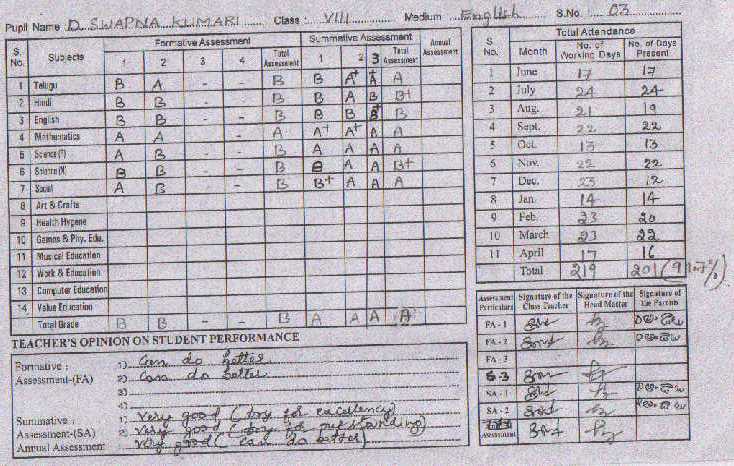 Pupil Name D. SWAPNA KUMARI Class : VIII Medium English S.No. 03
S. No. Subjects Formative Assessment Summative Assessment Annual Assessment
1 2 3 4 Total Assessment 1 2 3 Total Assessment
1 Telugu B A - - B B A+ A+ A
2 Hindi B B - - B B A B B+
3 English B B - - B B B B+ B
4 Mathematics A A - - A A+ A+ A A
5 Science (P) A B - - B A A A A
6 Science (N) B B - - B B A A B+
7 Social A B - - B B+ A A A
8 Art & Crafts
9 Health Hygene
10 Games & Phy. Edu.
11 Musical Education
12 Work & Education
13 Computer Education
14 Value Education
Total Grade B B - - B A A A A
S. No. Month Total Attendence
No. of Working Days No. of Days Present
1 June 17 17
2 July 24 24
3 Aug. 21 19
4 Sept. 22 22
5 Oct. 13 13
6 Nov. 22 22
7 Dec. 23 12
8 Jan. 14 14
9 Feb. 23 20
10 March 23 22
11 April 17 16
Total 219 201
Assessment Particulars Signature of the Class Teacher Signature of the Head Master Signature of the Parents
FA - 1
FA - 2
FA - 3
S-3
SA - 1
SA - 2
ASSESSMENT
TEACHER'S OPINION ON STUDENT PERFORMANCE
Formative : 1) Can do better
Assessment-(FA) 2) Can do better
3)
4)
Summative : 1) Very good (try for excellency)
Assessment-(SA) 2) Very good (try for outstanding)
Annual Assessment Very good (can do better)